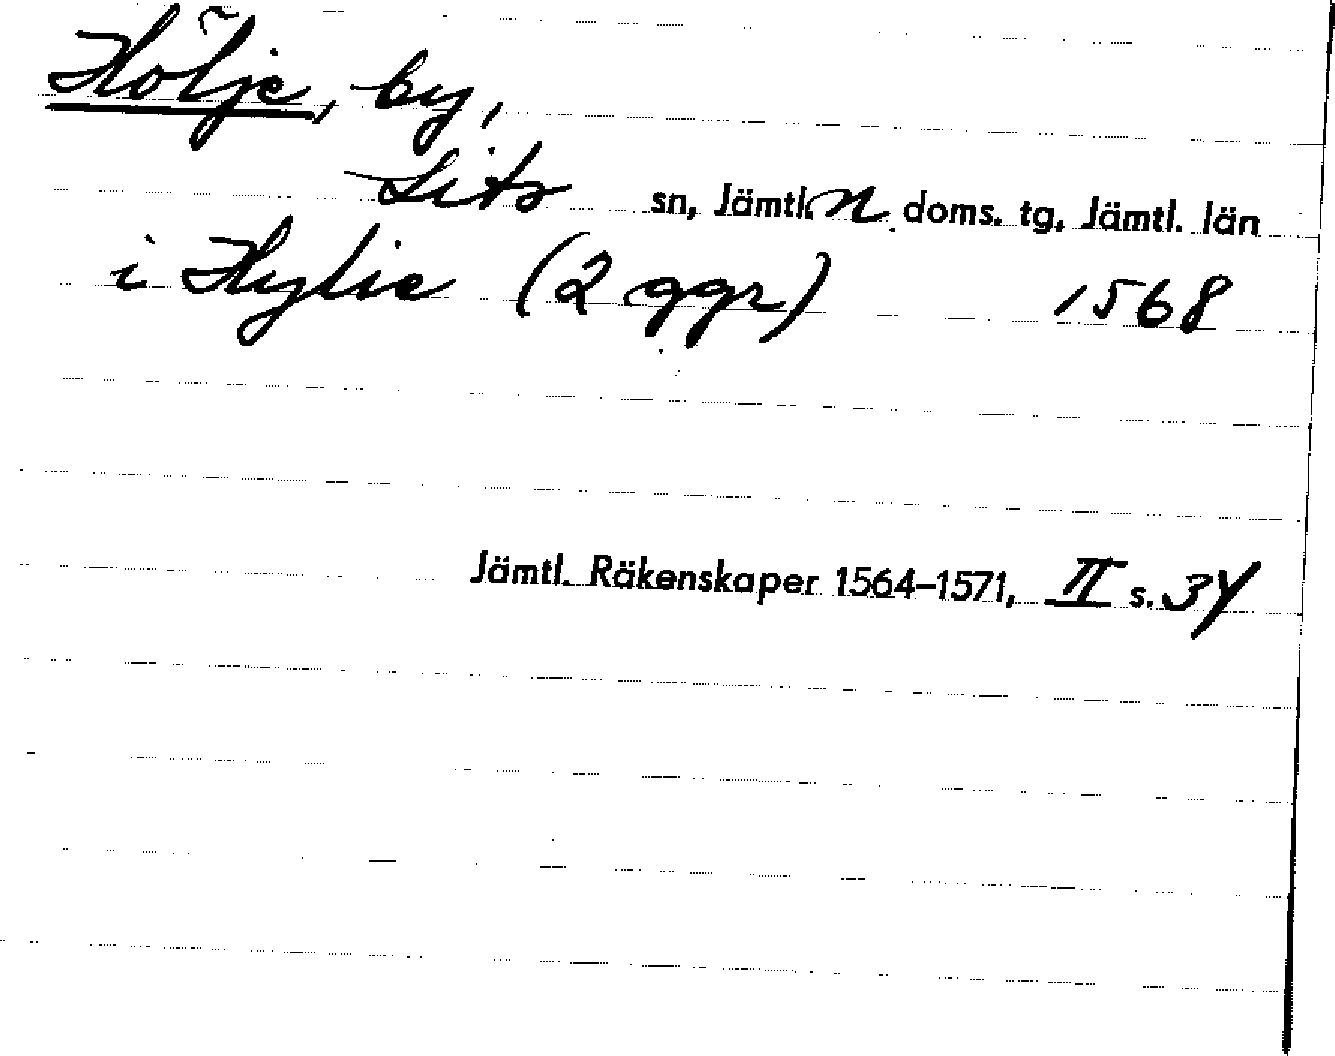 Hölje, by,
Lits sn, Jämtl. n. doms. tg, Jämtl. län
i Hylie (2 ggr) 1568
Jämtl. Räkenskaper 1564–1571, II s. 34